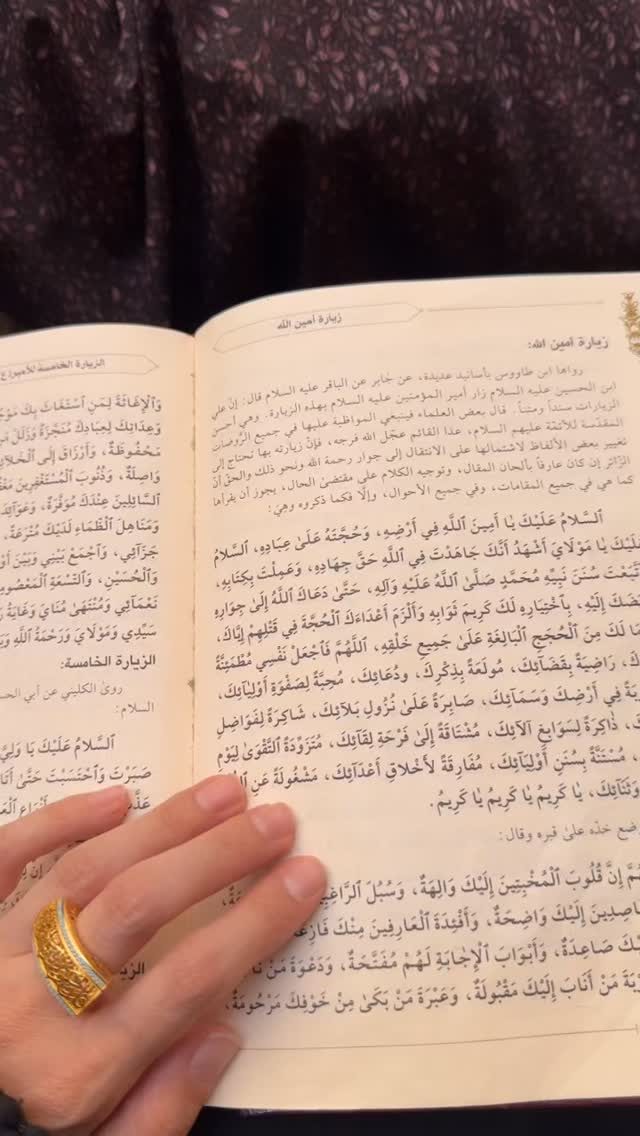 زيارة أمين الله
زيارة أمين الله:
رواها ابن طاووس بأسانيد عديدة، عن جابر عن الباقر عليه السلام قال: إنّ علي
ابن الحسين عليه السلام زار أمير المؤمنين عليه السلام بهذه الزيارة. وهي أحسن
الزيارات سنداً ومتناً. قال بعض العلماء فينبغي المواظبة عليها في جميع الرَّوضات
المقدّسة للأئمّة عليهم السلام، عدا القائم عجّل الله فرجه، فإنّ زيارته بها تحتاج إلى
تغيير بعض الألفاظ لاشتمالها على الانتقال إلى جوار رحمة الله ونحو ذلك والحقّ أنّ
الزّائر إن كان عارفاً بألحان المقال، وتوجيه الكلام على مقتضىٰ الحال، يجوز أن يقرأها
كما هي في جميع المقامات، وفي جميع الأحوال، وإلّا فكما ذكروه وهيَ:
السَّلامُ عَلَيْكَ يٰا أَمِينَ ٱللَّهِ فِي أَرْضِهِ، وَحُجَّتَهُ عَلىٰ عِبادِهِ، السَّلامُ
عَلَيْكَ يٰا مَوْلايَ أَشْهَدُ أَنَّكَ جَاهَدْتَ فِي ٱللَّهِ حَقَّ جِهَادِهِ، وَعَمِلْتَ بِكِتَابِهِ،
تَّبَعْتَ سُنَنَ نَبِيِّهِ مُحَمَّدٍ صَلَّىٰ ٱللَّهُ عَلَيْهِ وَآلِهِ، حَتَّىٰ دَعَاكَ ٱللَّهُ إِلىٰ جِوَارِهِ
ضَكَ إِلَيْهِ، بِٱخْتِيَارِهِ لَكَ كَرِيمَ ثَوَابِهِ وَأَلْزَمَ أَعْدَاءَكَ ٱلْحُجَّةَ فِي قَتْلِهِمْ إِيَّاكَ،
مَا لَكَ مِنَ ٱلْحُجَجِ ٱلْبَالِغَةِ عَلىٰ جَمِيعِ خَلْقِهِ. ٱللَّهُمَّ فَٱجْعَلْ نَفْسِي مُطْمَئِنَّةً
كَ، رَاضِيَةً بِقَضَآئِكَ، مُولَعَةً بِذِكْرِكَ، وَدُعَائِكَ، مُحِبَّةً لِصَفْوَةِ أَوْلِيَآئِكَ،
بَةً فِي أَرْضِكَ وَسَمَآئِكَ، صَابِرَةً عَلىٰ نُزُولِ بَلَآئِكَ، شَاكِرَةً لِفَوَاضِلِ
كَ، ذَاكِرَةً لِسَوَابِغِ آلَآئِكَ، مُشْتَاقَةً إِلىٰ فَرْحَةِ لِقَآئِكَ، مُتَزَوِّدَةً ٱلتَّقْوىٰ لِيَوْمِ
، مُسْتَنَّةً بِسُنَنِ أَوْلِيَآئِكَ، مُفَارِقَةً لأَخْلاقِ أَعْدَآئِكَ، مَشْغُولَةً عَنِ
وَثَنَآئِكَ، يٰا كَرِيمُ يٰا كَرِيمُ يٰا كَرِيمُ.
ضع خدّه علىٰ قبره وقال:
هُمَّ إِنَّ قُلُوبَ ٱلْمُخْبِتِينَ إِلَيْكَ وَالِهَةٌ، وَسُبُلَ ٱلرَّاغِبِ
صِدِينَ إِلَيْكَ وَاضِحَةٌ، وَأَفْئِدَةَ ٱلْعَارِفِينَ مِنْكَ فَازِ
يْكَ صَاعِدَةٌ، وَأَبْوَابَ ٱلإِجَابَةِ لَهُمْ مُفَتَّحَةٌ، وَدَعْوَةَ مَنْ نَا
بَةَ مَنْ أَنَابَ إِلَيْكَ مَقْبُولَةٌ، وَعَبْرَةَ مَنْ بَكَىٰ مِنْ خَوْفِكَ مَرْحُومَةٌ،
الزيارة الخامسة للأمير
وَٱلْإِغَاثَةَ لِمَنِ ٱسْتَغَاثَ بِكَ
وَعِدَاتِكَ لِعِبَادِكَ مُنْجَزَةٌ وَزَلَلَ
مَحْفُوظَةٌ، وَأَرْزَاقَ إِلَى ٱلْخَلَا
وَاصِلَةٌ، وَذُنُوبَ ٱلْمُسْتَغْفِرِينَ
ٱلسَّائِلِينَ عِنْدَكَ مُوَفَّرَةٌ، وَعَوَآئِدَ
وَمَنَاهِلَ ٱلظِّمَاءِ لَدَيْكَ مُتْرَعَةٌ،
جَزَآئِي، وَٱجْمَعْ بَيْنِي وَبَيْنَ أَوْ
وَٱلْحُسَيْنِ، وَٱلتِّسْعَةِ ٱلْمَعْصُومِ
نَعْمَآئِي وَمُنْتَهىٰ مُنَايَ وَغَايَةُ
سَيِّدِي وَمَوْلَايَ وَرَحْمَةُ ٱللَّهِ
الزيارة الخامسة:
روىٰ الكليني عن أبي الحس
السلام:
ٱلسَّلَامُ عَلَيْكَ يَا وَلِيَّ
صَبَرْتَ وَٱحْتَسَبْتَ حَتَّىٰ أَتَا
الزيار